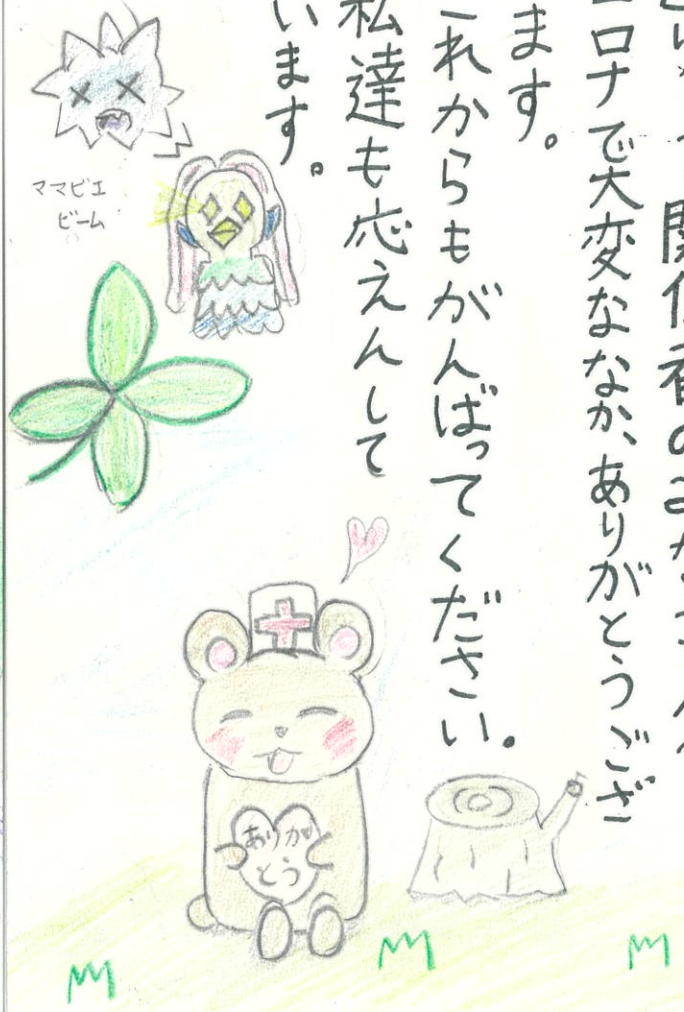 関係者の
コロナで大変ななか、ありがとうござ
ます。
これからもがんばってください。
私達も応えんして
います。
ママビエ
ビーム
ありが
とう